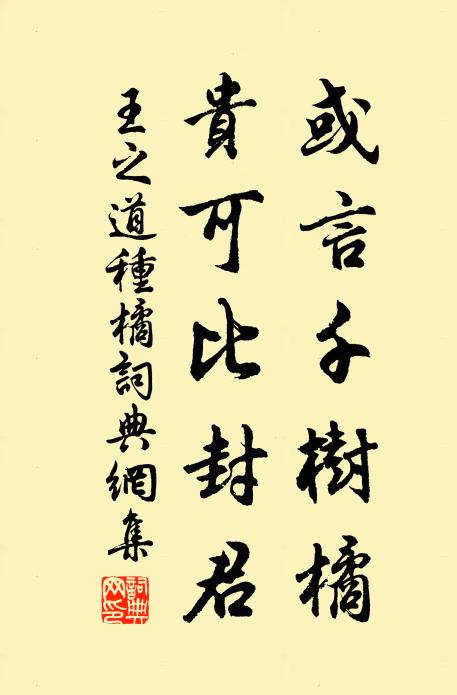 或言千樹橘
貴可比封君
王之道種橘詞典網集
詞典網印